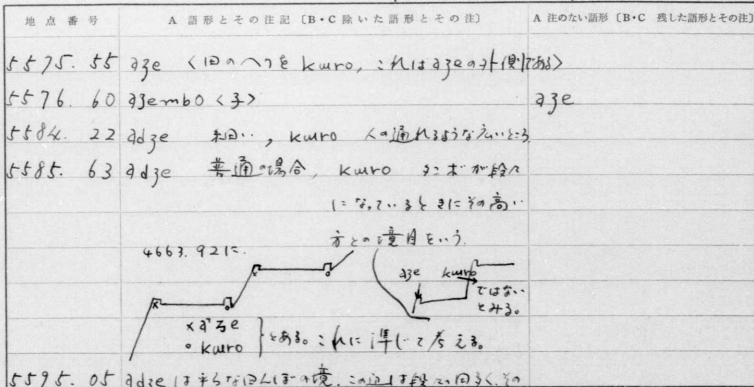 地点番号 A 語形とその注記〔B・C 除いた語形とその注〕 A 注のない語形〔B・C 残した語形とその注〕
5575. 55 aʒe 〈田のヘリを kɯro, これは aʒeの外側である〉
5576. 60 aʒembo〈子〉 aʒe
5584. 22 adʒe 細い, kɯro 人の通れるような広いところ
5585. 63 adʒe 普通の場合, kɯro タンボが段々
になっているときにその高い
方との境目をいう.
4663.921に.
aʒe kɯro
ではない
とみる。
× aʒe
○ kɯro
とある。これに準じて考える。
5595. 05 adʒeは平らな田んぼの境. この辺は段々の田多く, その